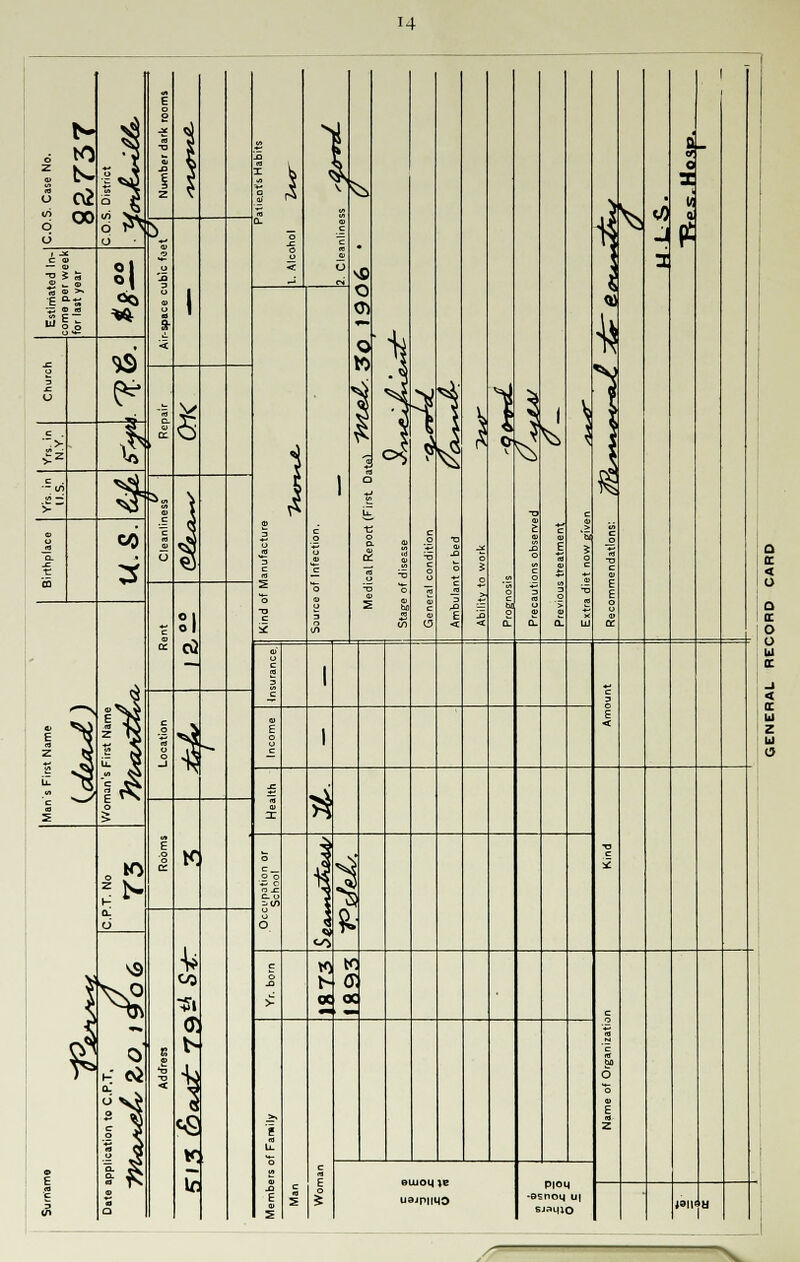 14
Surname Perry
Man's First Name (dead)
Birthplace
Yrs. in U.S.
Yrs. in N.Y.
Church
Estimated Income per week for last year
C.O.S. Case No. 82737
Date application to C.P.T. March 20 1906
C.P.T. No 73
Woman's First Name Martha
U.S. life 5 yr. R.C. $8.00
C.O.S. District Yorkville
Address
Rooms
Location
Rent
Cleanliness
Repair
Air-space cubic feet
Number dark rooms
513 East 79th St. 3 top 12.00 Clean O.K — none
Members of Family
Yr. born
Occupation or School
Health
Income
Insurance
Man
Woman 1873 Seamstress tb. — —
1893 P. Sch.
Children at home
Others in household
Kind of Manufacture none
Source of Infection. —
Patient's Habits
1. Alcohol no
2. Cleanliness good
Medical Report (First Date) Mch. 30, 1906.
Stage of disease Incipient
General condition good
Ambulant or bed amb.
Ability to work no
Prognosis good
Precautions observed yes
Previous treatment —
Extra diet now given no
Recommendations: Removal to country
Relief
Name of Organization
Kind
Amount
H.L.S.
Pres. Hosp.
GENERAL RECORD CARD